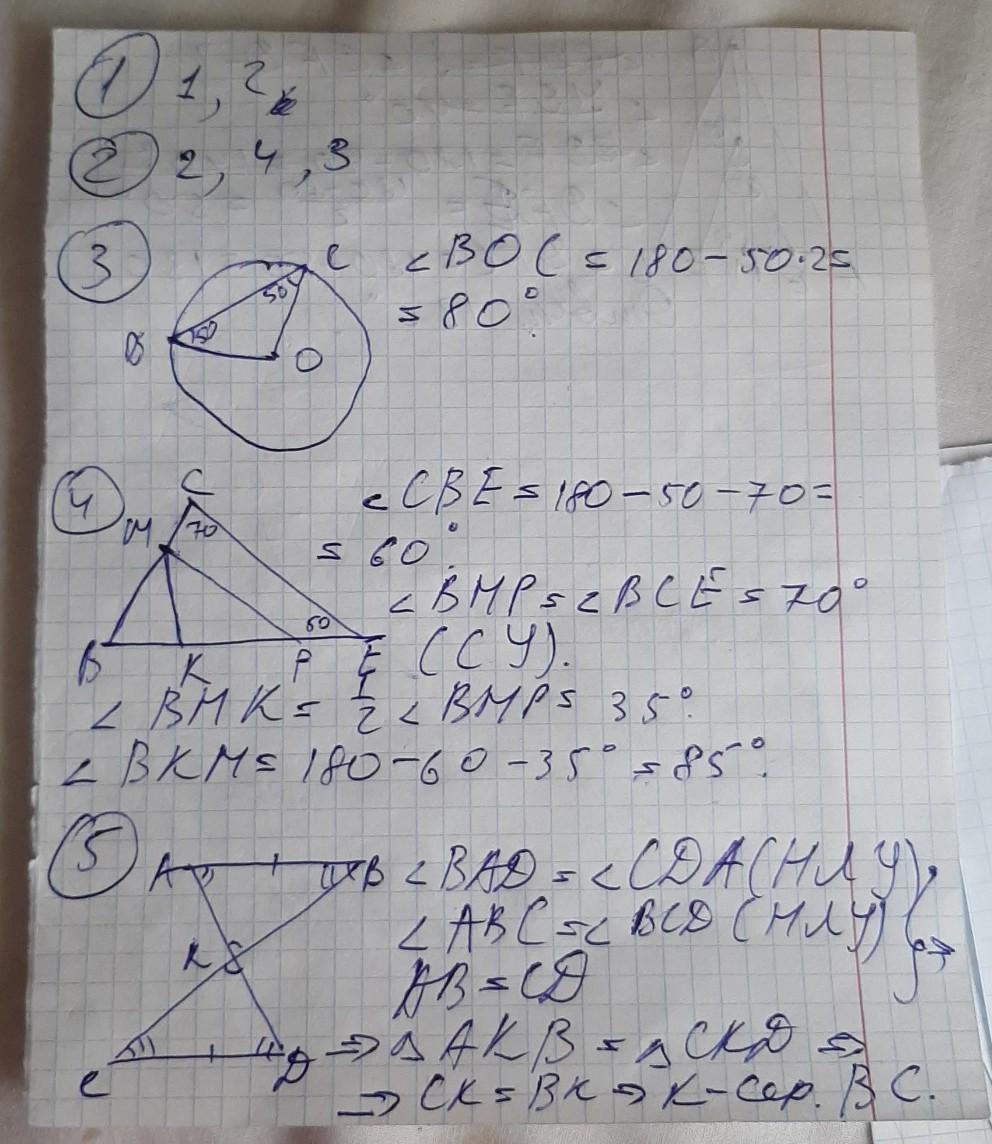 ① 1, 2
② 2, 4, 3
③
C
50
B
50
O
∠BOC = 180 - 50·2 =
= 80°.
④
C
M
70
50
B
K
P
E
∠CBE = 180 - 50 - 70 =
= 60°.
∠BMP = ∠BCE = 70°
(СУ).
∠BMK = 1/2 ∠BMP = 35°.
∠BKM = 180 - 60 - 35° = 85°.
⑤
A
B
K
C
D
∠BAD = ∠CDA (НЛУ),
∠ABC = ∠BCD (НЛУ) } ⇒
AB = CD
⇒ △AKB = △CKD ⇒
⇒ CK = BK ⇒ K - сер. BC.